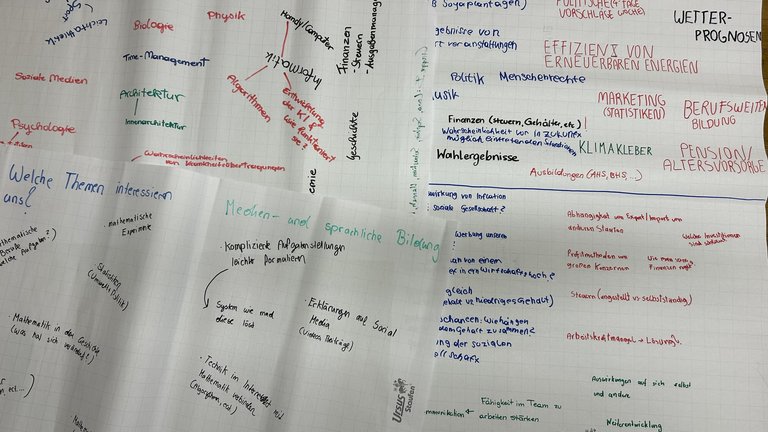 Biologie
Physik
Handy/Computer
Finanzen
- Steuern
- Ausgabenmanage
Time-Management
Informatik
Soziale Medien
Architektur
Innenarchitektur
Algorithmen
Entwicklung
der KI &
wie funktioniert
sie?
Geschichte
Psychologie
Wahrscheinlichkeiten
von Krankheitsübertragungen
Welche Themen interessieren
uns?
mathematische
Experimente
Statistiken
Mathematik in der Geschichte
(was hat sich verändert?)
Medien- und sprachliche Bildung
· Komplizierte Aufgabenstellungen
leichter formulieren
System wie man
diese löst
· Erklärungen auf Social
Media
(Videos, Beiträge)
· Technik im Interesse mit
Mathematik verbinden
(Algorithmen, ect.)
URSUS
Staufen
B Sojaplantagen)
POLITISCHE (4-TAGE
VORSCHLÄGE WOCHE)
WETTER-
PROGNOSEN
gebnisse von
rt veranstaltungen
EFFIZIENZ VON
ERNEUERBAREN ENERGIEN
Politik Menschenrechte
usik
MARKETING
(STATISTIKEN)
BERUFSWEITEN
BILDUNG
Finanzen (Steuern, Gehälter, etc)
Wahrscheinlichkeit von in Zukunft
möglich eintretenden Situationen
KLIMAKLEBER
Wahlergebnisse
PENSION/
ALTERSVORSORGE
Ausbildungen (AHS, BHS, ...)
wirkung von Inflation
soziale Gesellschaft?
Abhängigkeit von Export/Import von
anderen Staaten
Werbung unseren
Profitmethoden von
großen Konzernen
gleich
Steuern (angestellt vs selbstständig)
chancen: Wie hängen
dem Gehalt zusammen?
ng der sozialen
Arbeitskräftemangel → Lösung?
Auswirkungen auf sich selbst
und andere
Fähigkeit im Team zu
arbeiten stärken
Weiterentwicklung